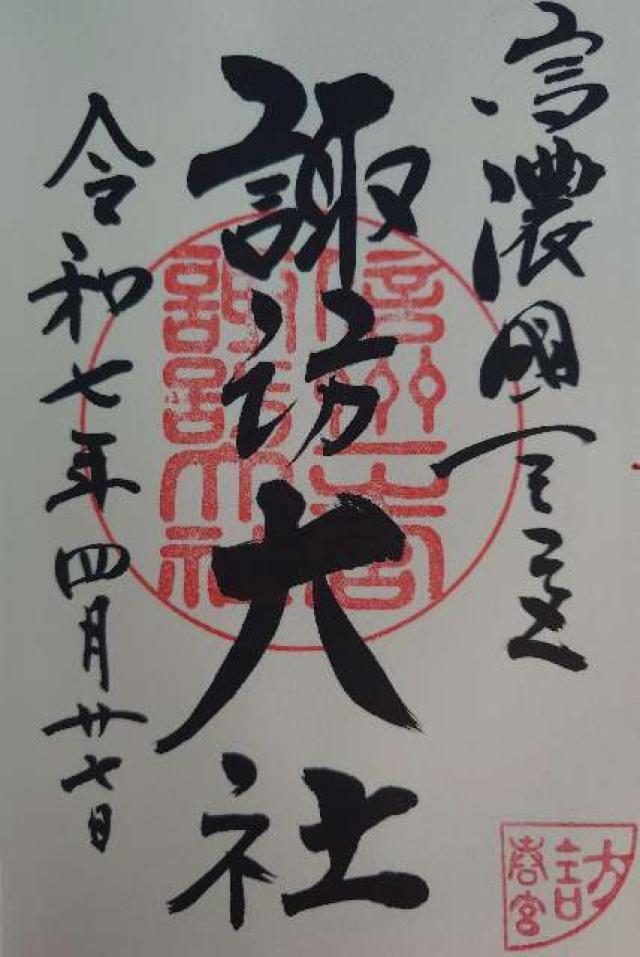 信濃國一之宮
諏訪大社
令和七年四月廿七日
信州一之宮
諏訪大社
訪
春宮